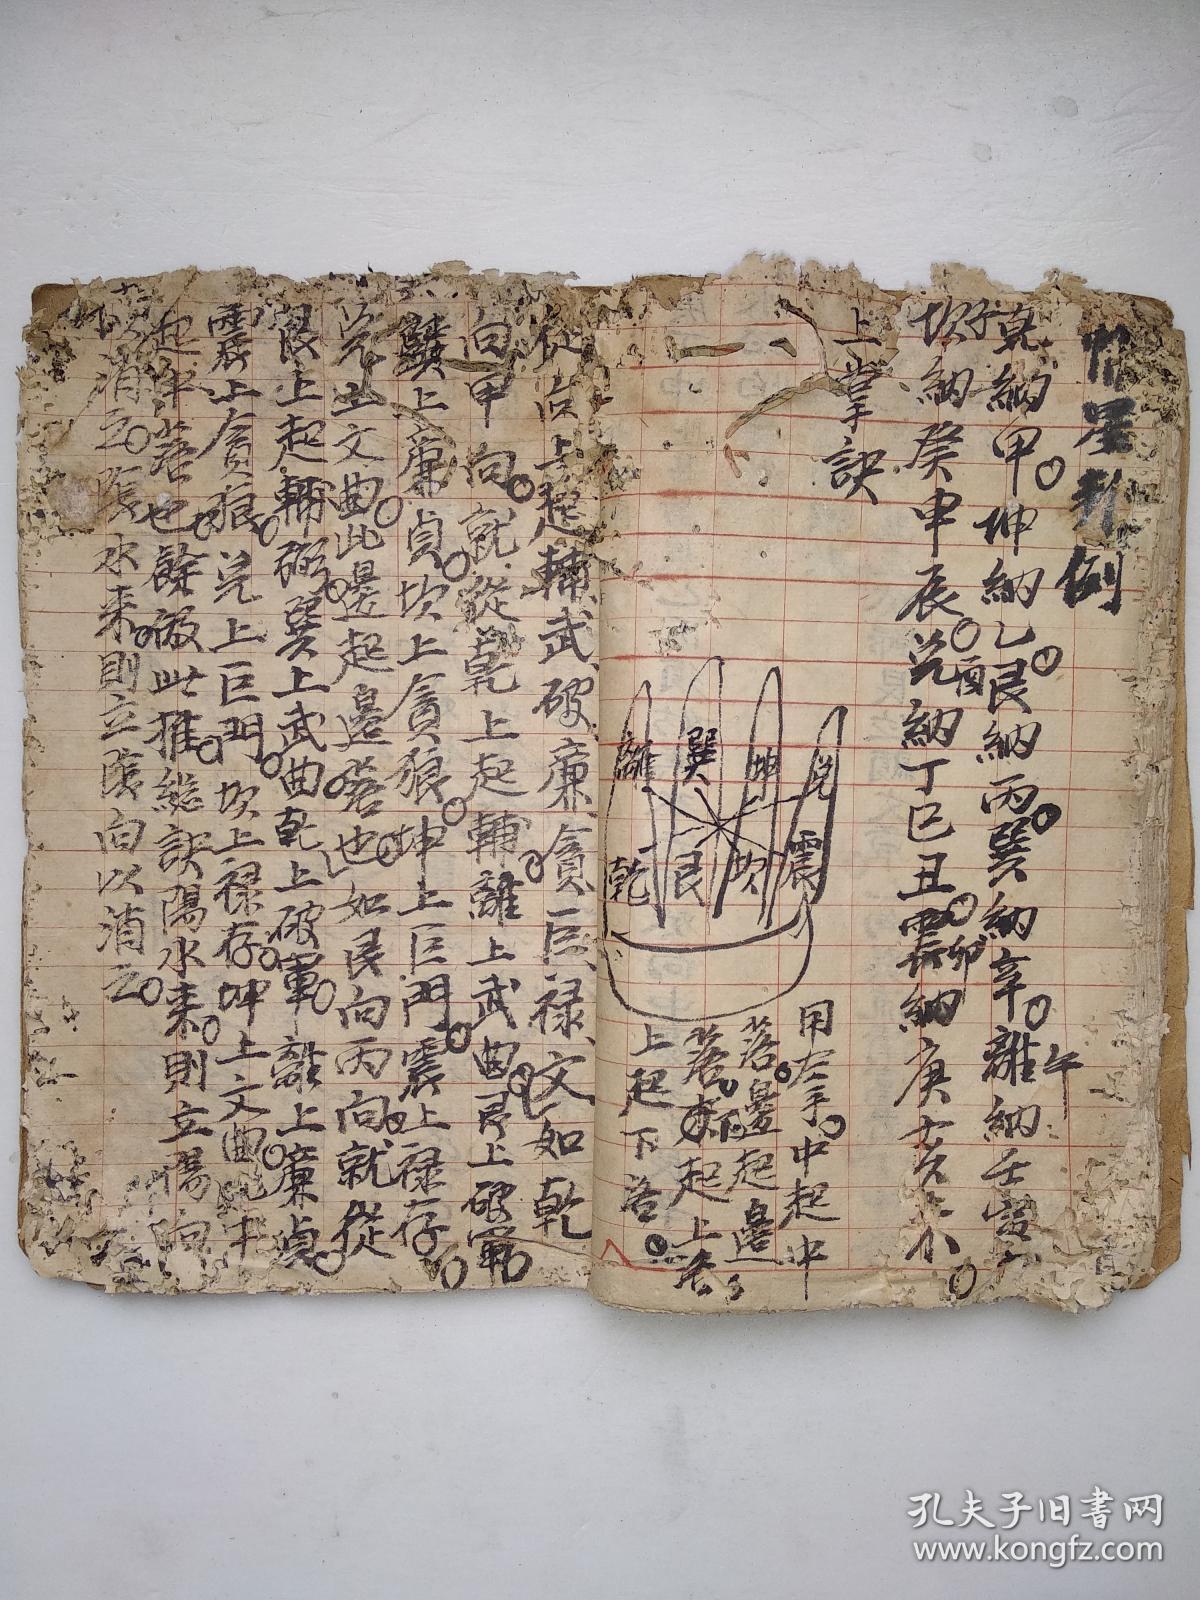 星 例
乾納甲坤納乙艮納丙巽納辛離納壬寅
午
坎納癸申辰兌納丁巳丑震納庚亥未
子
酉
卯
上掌訣
離 巽 坤 兌
乾 艮 坎 震
用左手中起中
落邊起邊
落下起上落
上起下落
從向上起輔武破廉貪巨祿文如乾
向甲向就從乾上起輔離上武曲艮上破軍
巽上廉貞坎上貪狼坤上巨門震上祿存
兌上文曲此邊起邊落也如艮向丙向就從
艮上起輔弼巽上武曲乾上破軍離上廉貞
震上貪狼兌上巨門坎上祿存坤上文曲此中
起中落也餘倣此推総訣陽水來則立陽向
以消之陰水来則立陰向以消之
孔夫子旧书网
www.kongfz.com